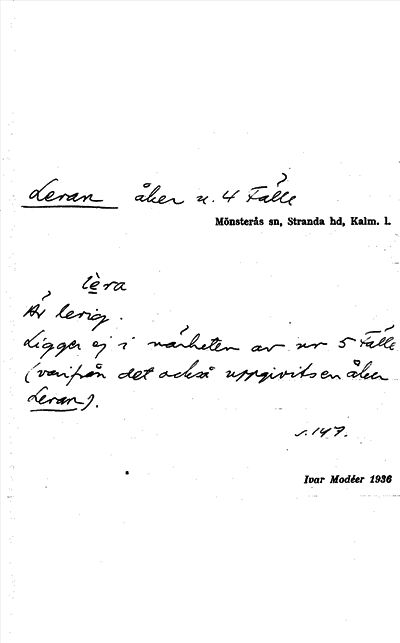 Leran åker u. 4 Fälle
Mönsterås sn, Stranda hd, Kalm. l.
lèra
Är lerig.
Ligger ej i närheten av nr 5 Fälle
(varifrån det också uppgivits en åker
Leran).
s. 147.
Ivar Modéer 1936